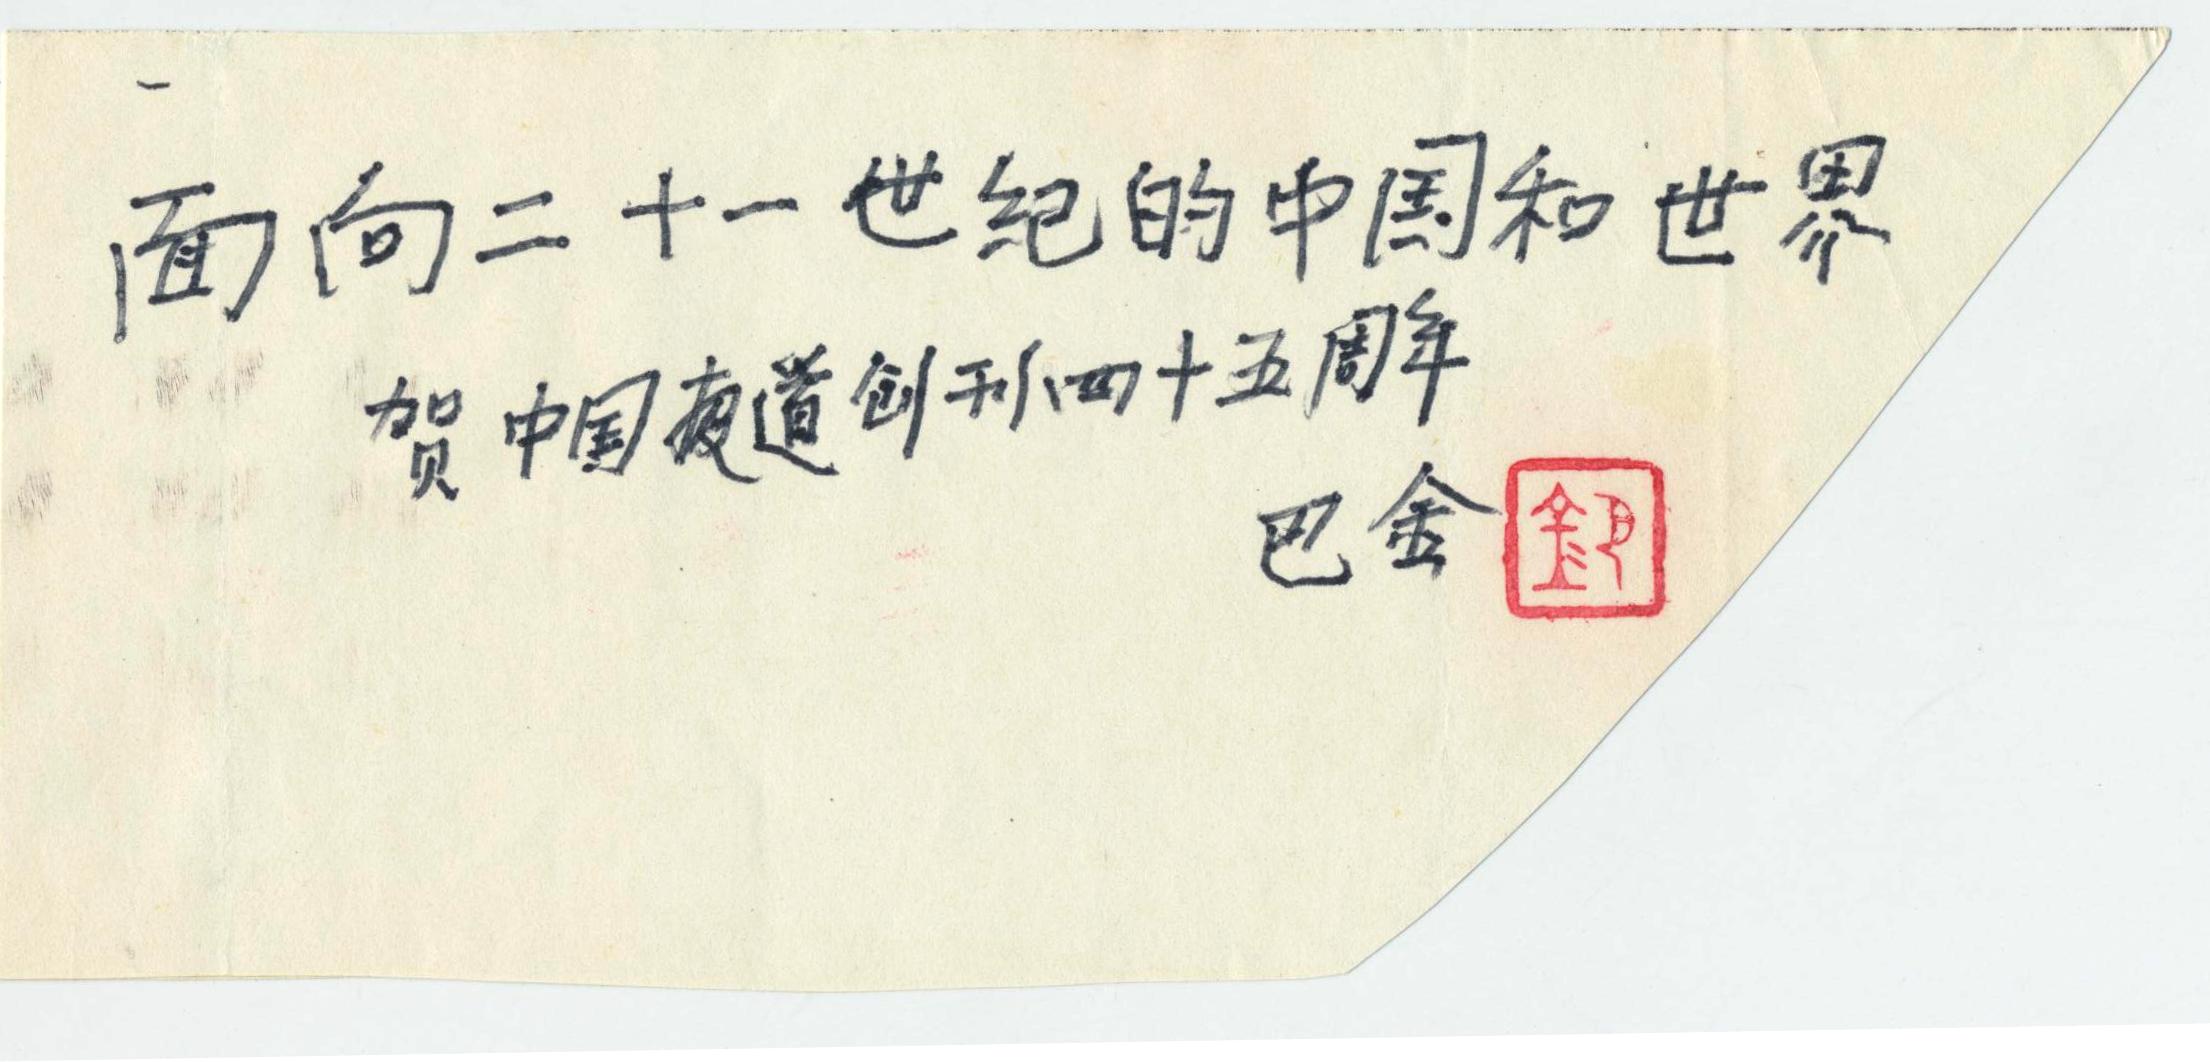 面向二十一世纪的中国和世界
贺中国报道创刊四十五周年
巴金
巴金